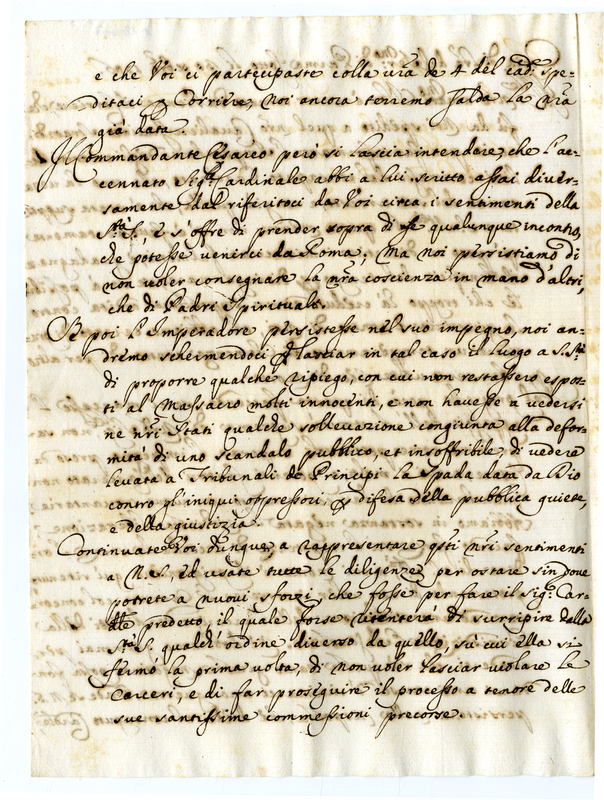 e che Voi ci partecipaste colla vrã de 4 del cad: spe-
ditaci p Corriere, noi ancora terremo salda la nrã
già data.
Il Commandante Cesareo però si lascia intendere, che l'ac-
cennato Sigr. Cardinale abbi a lui scritto assai diver-
samente dal riferitoci da Voi circa i sentimenti della
Stà. S., e s'offre di prender sopra di se qualunque incontro,
che potesse venirci da Roma; Ma noi persistiamo di
non voler consegnare la nrã coscienza in mano d'altri,
che di Padri Spirituali.
Se poi l'Imperadore persistesse nel suo impegno, noi an-
dremo schermendoci p lasciar in tal caso il luogo a S. Stà
di proporre qualche ripiego, con cui non restassero espos-
ti al Massacro molti innocenti, e non havesse a vedersi
ne nrì Stati qualche sollevazione congiunta alla defor-
mità di uno scandalo pubblico, et insoffribile, di vedere
levata a Tribunali de Principi la Spada data da Dio
contro gl'iniqui oppressori p difesa della pubblica quiete,
e della giustizia.
Continuate Voi dunque a rappresentare qsti nrì sentimenti
a N. S., ed usate tutte le diligenze per ostare sin dove
potrete a nuovi sforzi, che fosse per fare il sigr: Car-
dle predetto, il quale forse tenterà di surripire dalla
Stà S. qualch'ordine diverso da quello, sù cui ella si
fermò la prima volta, di non voler lasciar violare le
Carceri, e di far proseguire il processo a tenore delle
sue santissime commessioni precorse.